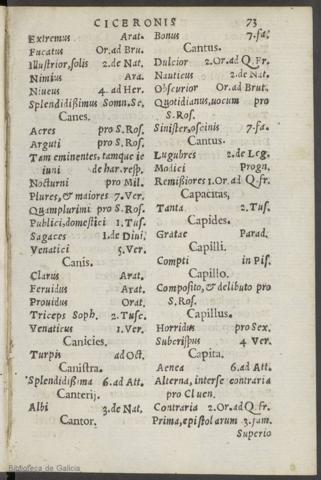 CICERONIS 73
Extremus Arat.
Fucatus Or. ad Bru.
Illustrior, solis 2. de Nat.
Nimius Ara.
Niueus 4. ad Her.
Splendidißimus Somn. Sc.
Canes.
Acres pro S. Ros.
Arguti pro S. Ros.
Tam eminentes, tamque ie
iuni de har. resp.
Nocturni pro Mil.
Plures, & maiores 7. Ver.
Quamplurimi pro S. Ros.
Publici, domestici 1. Tus.
Sagaces 1. de Diui.
Venatici 5. Ver.
Canis.
Clarus Arat.
Feruidus Arat.
Prouidus Orat.
Triceps Soph. 2. Tusc.
Venaticus 1. Ver.
Canicies.
Turpis ad Oct.
Canistra.
Splendidißima 6. ad Att.
Canterij.
Albi 3. de Nat.
Cantor.
Bonus 7. fa.
Cantus.
Dulcior 2. Or. ad Q. Fr.
Nauticus 2. de Nat.
Obscurior Or. ad Brut.
Quotidianus, uocum pro
S. Ros.
Sinister, oscinis 7. fa.
Cantus.
Lugubres 2. de Leg.
Modici Progn.
Remißiores 1. Or. ad Q. fr.
Capacitas,
Tanta 2. Tus.
Capides.
Gratae Parad.
Capilli.
Compti in Pis.
Capillo.
Composito, & delibuto pro
S. Ros.
Capillus.
Horridus pro Sex.
Subcrispus 4 Ver.
Capita.
Aenea 6. ad Att.
Alterna, interse contraria
pro Cluen.
Contraria 2. Or. ad Q. fr.
Prima, epistolarum 3. fam.
Superio
Biblioteca de Galicia